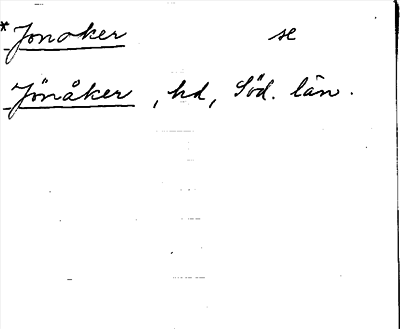 *Jonoker se
Jönåker, hd, Söd. län.